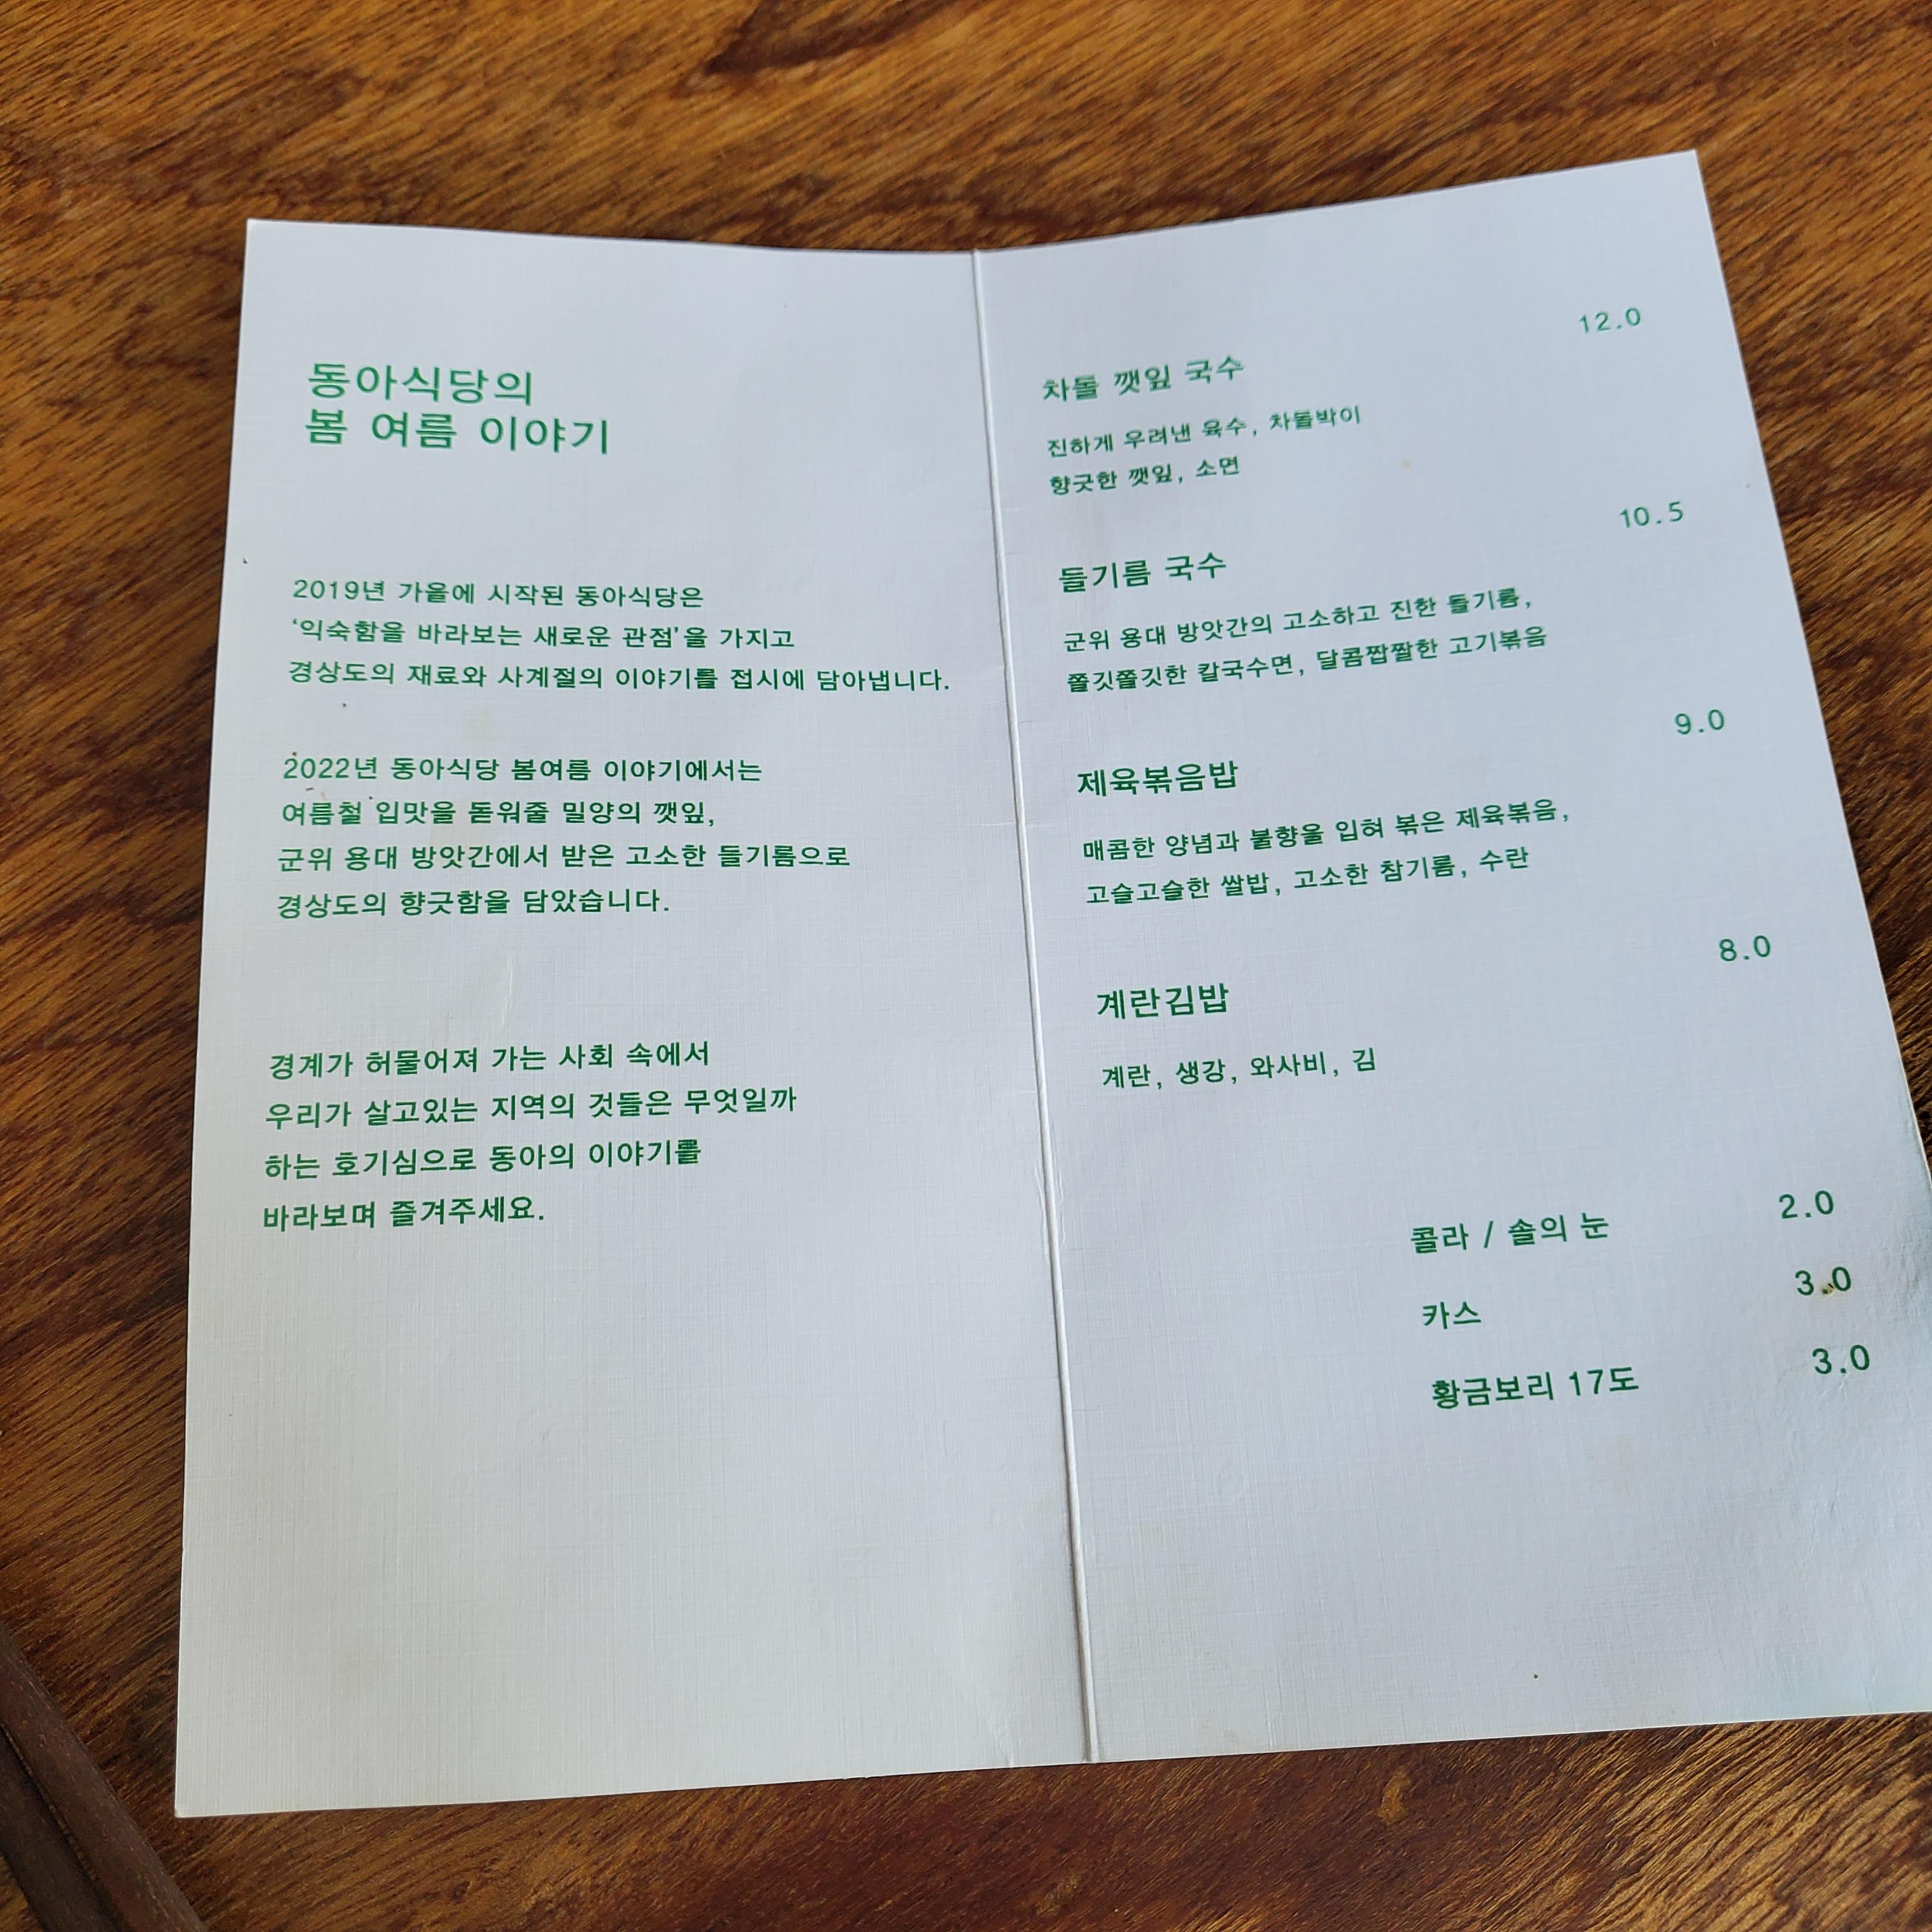 동아식당의
봄 여름 이야기
2019년 가을에 시작된 동아식당은
‘익숙함을 바라보는 새로운 관점’을 가지고
경상도의 재료와 사계절의 이야기를 접시에 담아냅니다.
2022년 동아식당 봄여름 이야기에서는
여름철 입맛을 돋워줄 밀양의 깻잎,
군위 용대 방앗간에서 받은 고소한 들기름으로
경상도의 향긋함을 담았습니다.
경계가 허물어져 가는 사회 속에서
우리가 살고있는 지역의 것들은 무엇일까
하는 호기심으로 동아의 이야기를
바라보며 즐겨주세요.
12.0
차돌 깻잎 국수
진하게 우려낸 육수, 차돌박이
향긋한 깻잎, 소면
10.5
들기름 국수
군위 용대 방앗간의 고소하고 진한 들기름,
쫄깃쫄깃한 칼국수면, 달콤짭짤한 고기볶음
9.0
제육볶음밥
매콤한 양념과 불향을 입혀 볶은 제육볶음,
고슬고슬한 쌀밥, 고소한 참기름, 수란
8.0
계란김밥
계란, 생강, 와사비, 김
콜라 / 솔의 눈 2.0
카스 3.0
황금보리 17도 3.0